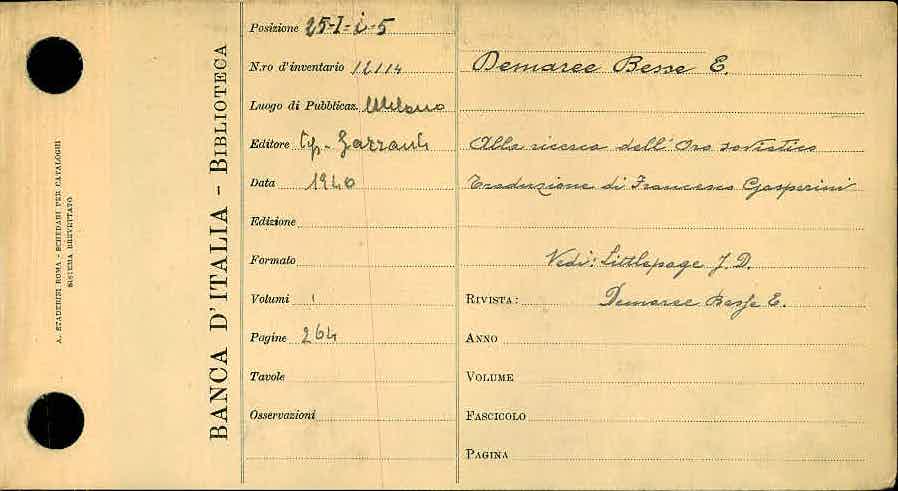 A. STADERINI ROMA - SCHEDARI PER CATALOGHI
SISTEMA BREVETTATO
BANCA D'ITALIA - BIBLIOTECA
Posizione 25-I-i-5
N.ro d'inventario 12114
Luogo di Pubblicaz. Milano
Editore Tip. Garzanti
Data 1940
Edizione
Formato
Volumi 1
Pagine 264
Tavole
Osservazioni
Demaree Besse E.
Alla ricerca dell'Oro sovietico
Traduzione di Francesco Gasperini
Vedi: Littlepage J. D.
RIVISTA: Demaree Besse E.
ANNO
VOLUME
FASCICOLO
PAGINA